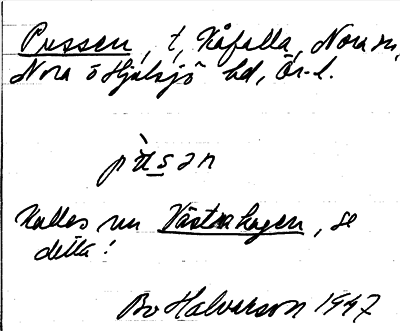 Pussen, t, Kåfalla, Nora sn,
Nora o Hjulsjö hd, Ör. l.
pùsən
Kallas nu Västra hagen, se
detta!
Bo Halvarson 1997